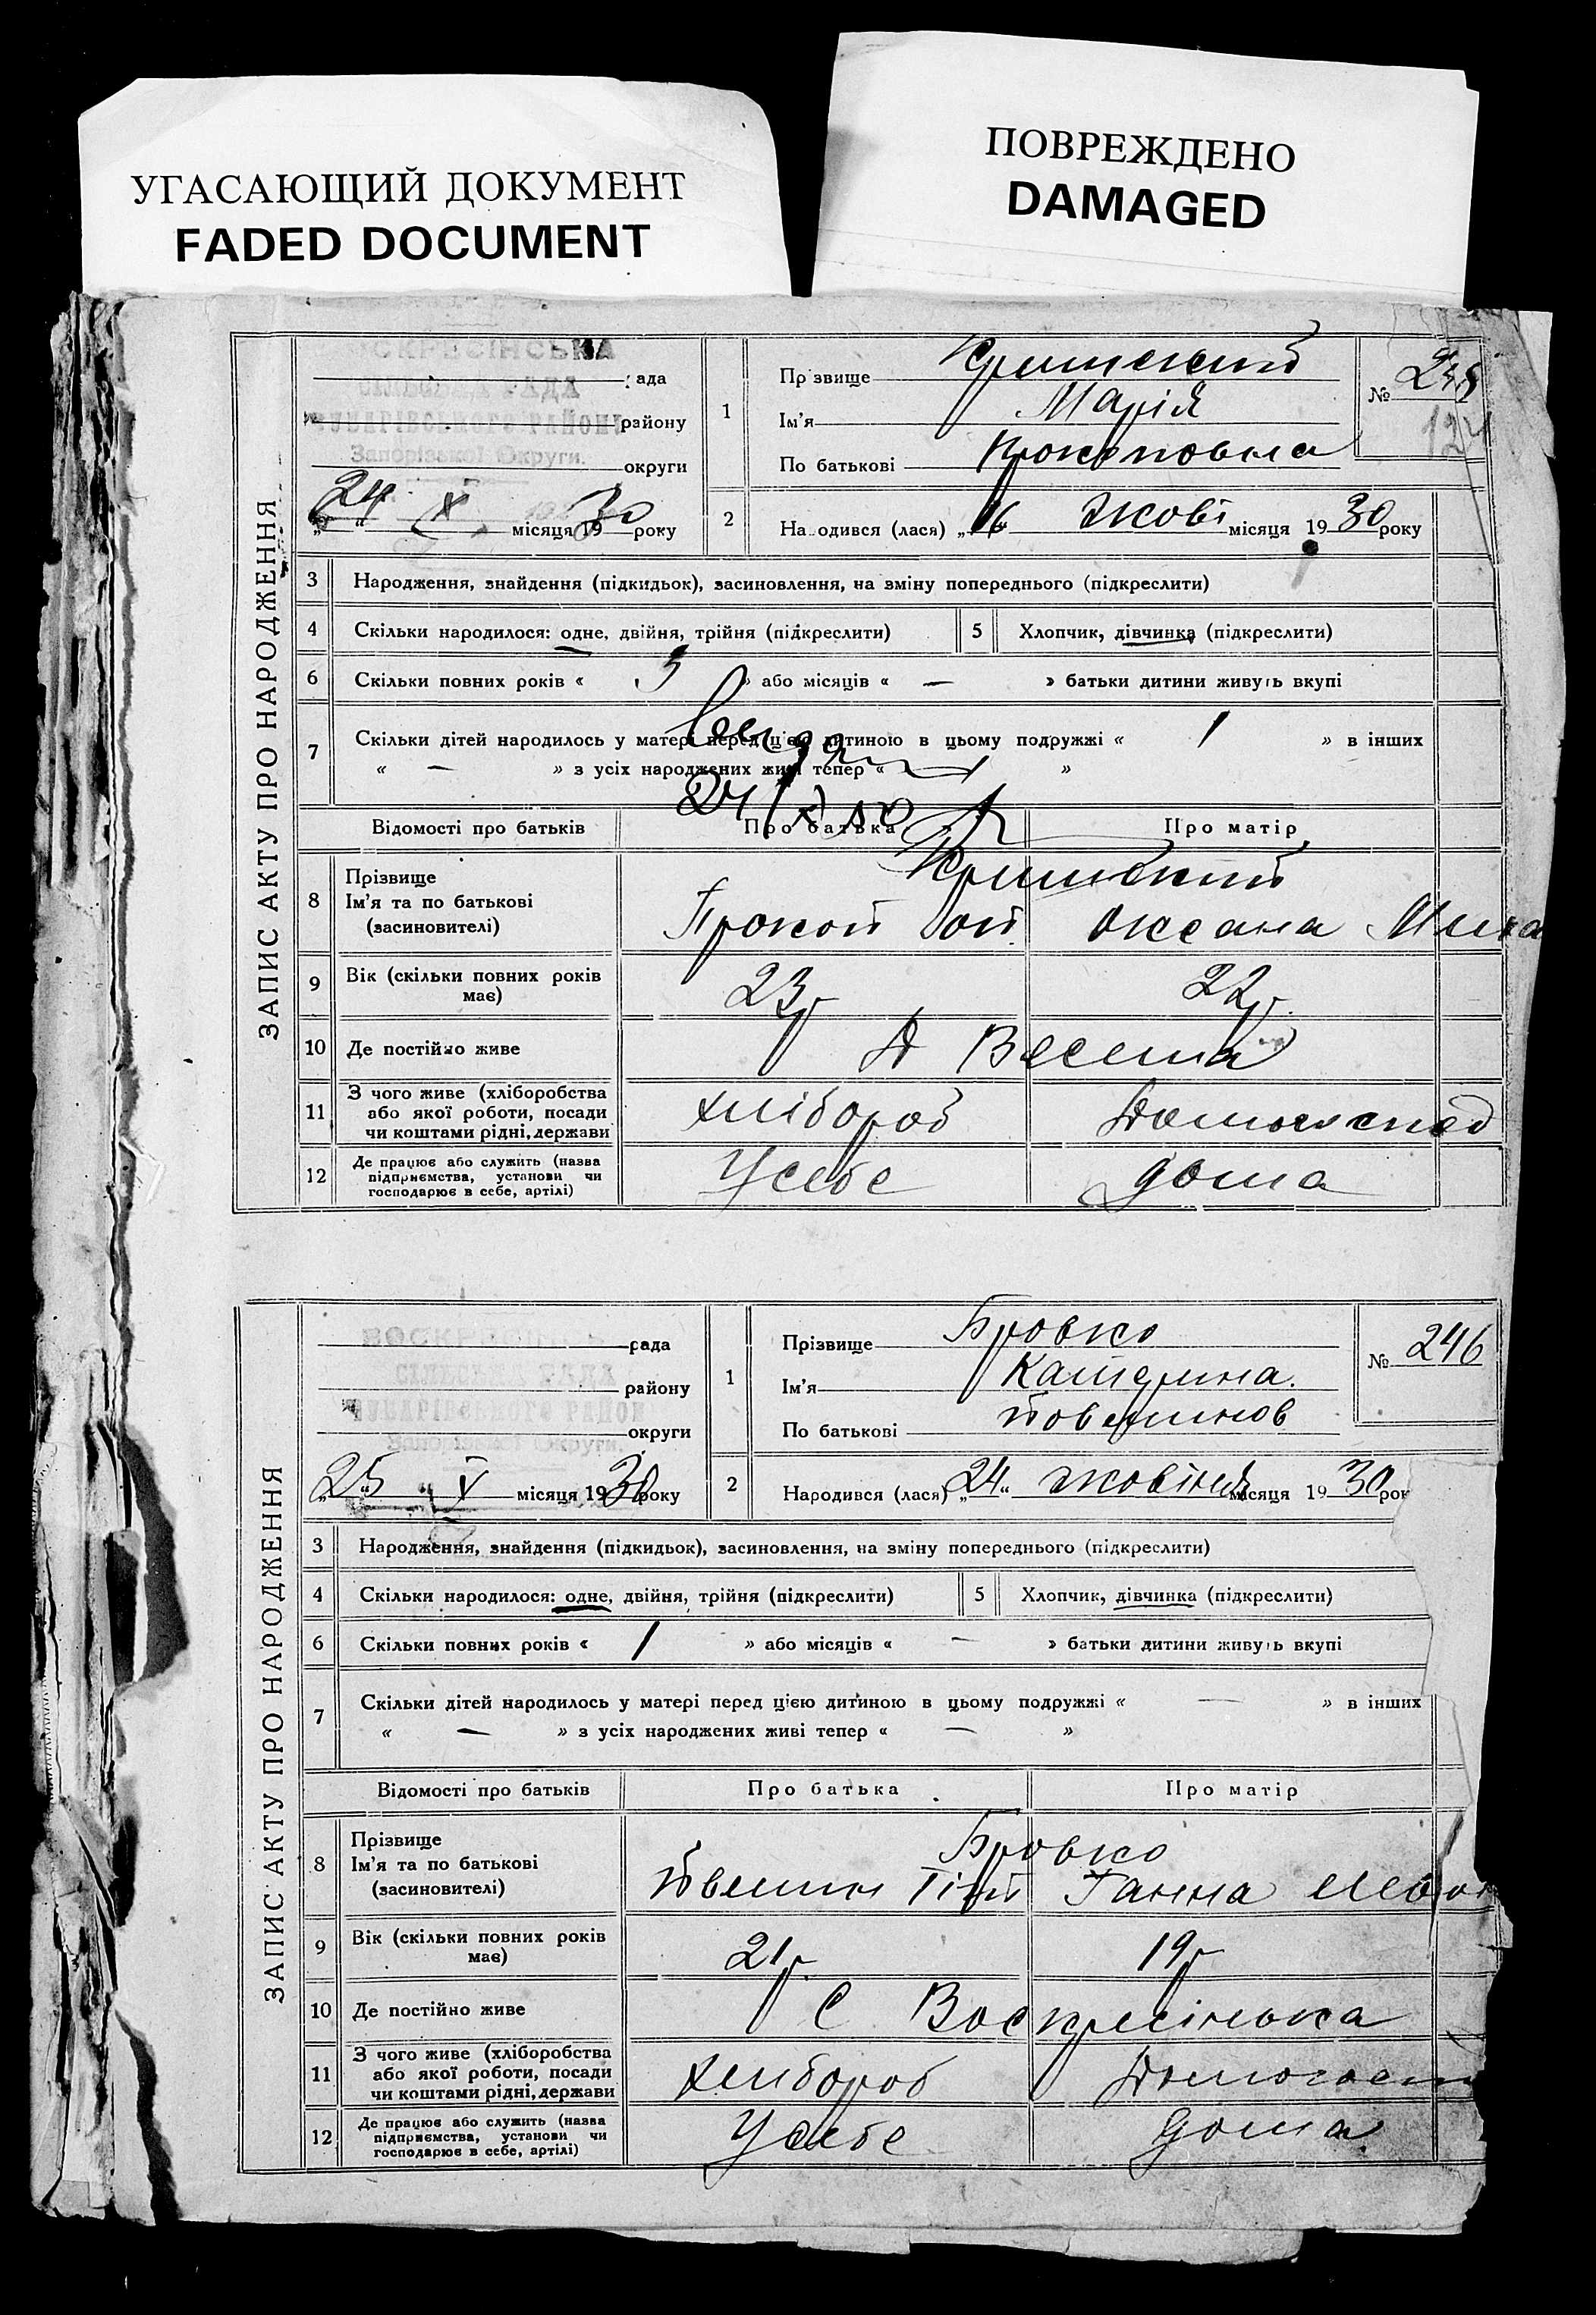 УГАСАЮЩИЙ ДОКУМЕНТ
FADED DOCUMENT
ПОВРЕЖДЕНО
DAMAGED
ЗАПИС АКТУ ПРО НАРОДЖЕННЯ
СКРЕСІНСЬКА
ада
СІЛЬСЬКА РАДА
району
Запорізької Округи.
округи
„24“ X місяця 1930 року
1
Пр звище
Ім'я Марія
По батькові Прокоповна
№
124
2 На одився (лася) „16“ жові місяця 1930 року
3 Народження, знайдення (підкидьок), засиновлення, на зміну попереднього (підкреслити)
4 Скільки народилося: одне, двійня, трійня (підкреслити) 5 Хлопчик, дівчинка (підкреслити)
6 Скільки повних років « 3 » або місяців « — » батьки дитини живуть вкупі
7 Скільки дітей народилось у матері перед цією дитиною в цьому подружжі « 1 » в інших
« — » з усіх народжених живі тепер « »
24/X 30
Відомості про батьків Про батька Про матір
8 Прізвище
Ім'я та по батькові
(засиновителі)
Прокоп Оксана
9 Вік (скільки повних років має) 23р 22р.
10 Де постійно живе Весела
11 З чого живе (хліборобства або якої роботи, посади чи коштами рідні, держави) хлібороб
12 Де працює або служить (назва підприємства, установи чи господарює в себе, артілі) Усебе дома
ЗАПИС АКТУ ПРО НАРОДЖЕННЯ
рада
СІЛЬСЬКА РАДА
району
Запорізької Округи.
округи
„25“ X місяця 1930 року
1
Прізвище Бровко
Ім'я Катерина.
По батькові
№ 246
2 Народився (лася) „24“ жовтня місяця 1930 рок
3 Народження, знайдення (підкидьок), засиновлення, на зміну попереднього (підкреслити)
4 Скільки народилося: одне, двійня, трійня (підкреслити) 5 Хлопчик, дівчинка (підкреслити)
6 Скільки повних років « 1 » або місяців « — » батьки дитини живуть вкупі
7 Скільки дітей народилось у матері перед цією дитиною в цьому подружжі « — » в інших
« — » з усіх народжених живі тепер « — »
Відомості про батьків Про батька Про матір
8 Прізвище
Ім'я та по батькові
(засиновителі)
Бровко
Ганна
9 Вік (скільки повних років має) 21р 19р
10 Де постійно живе С Воскресінська
11 З чого живе (хліборобства або якої роботи, посади чи коштами рідні, держави) хлибороб
12 Де працює або служить (назва підприємства, установи чи господарює в себе, артілі) Усебе дома